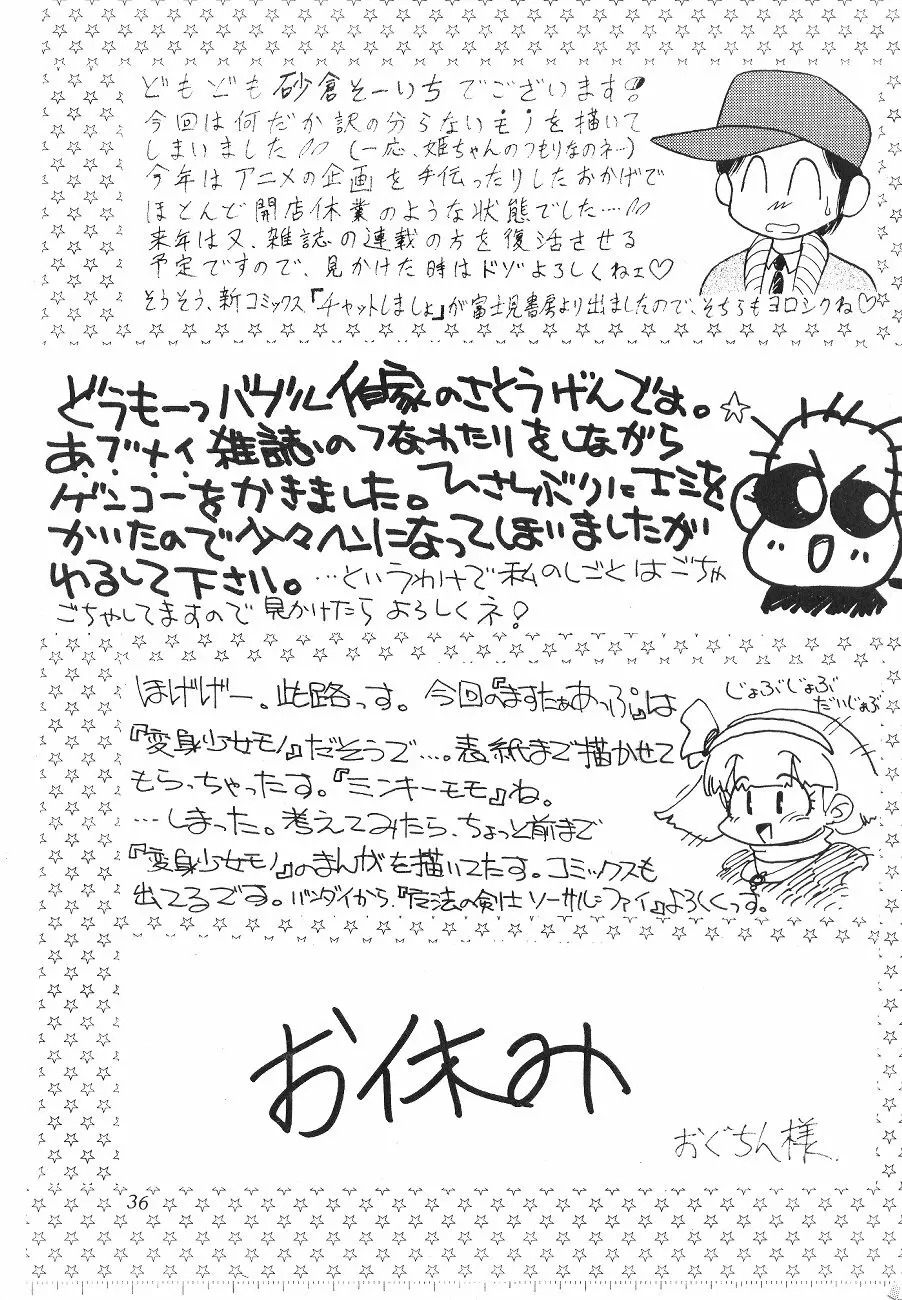 どもども砂倉そーいちでございます!
今回は何だか訳の分らないモノを描いて
しまいました (一応、姫ちゃんのつもりなのネ…)
今年はアニメの企画を手伝ったりしたおかげで
ほとんど開店休業のような状態でした…
来年は又、雑誌の連載の方を復活させる
予定ですので、見かけた時はドゾよろしくねェ♡
そうそう、新コミックス『チャットしましょ』が富士見書房より出ましたので、そちらもヨロシクね♡
どうもーっバブル作家のさとうげんです。☆
あ・ブ・ナ・イ雑誌のつなわたりをしながら
ゲンコーをかきました。ひさしぶりにエミを
かいたので少々ヘンになってしまいましたが
わるして下さい。…というわけで私のしごとはごちゃ
ごちゃしてますので見かけたらよろしくネ!
ほげげー。此路っす。今回の『ますたぁあっぷ』は
『変身少女モノ』だそうで…。表紙まで描かせて
もらっちゃったす。『ミンキーモモ』ね。
…しまった。考えてみたら、ちょっと前まで
『変身少女モノ』のまんがを描いてたす。コミックスも
出てるです。バンダイから『魔法の剣士ソーサル=ファイ』よろしくっす。
じょぶじょぶ
だいじょぶ
お休み
おぐちん様
36